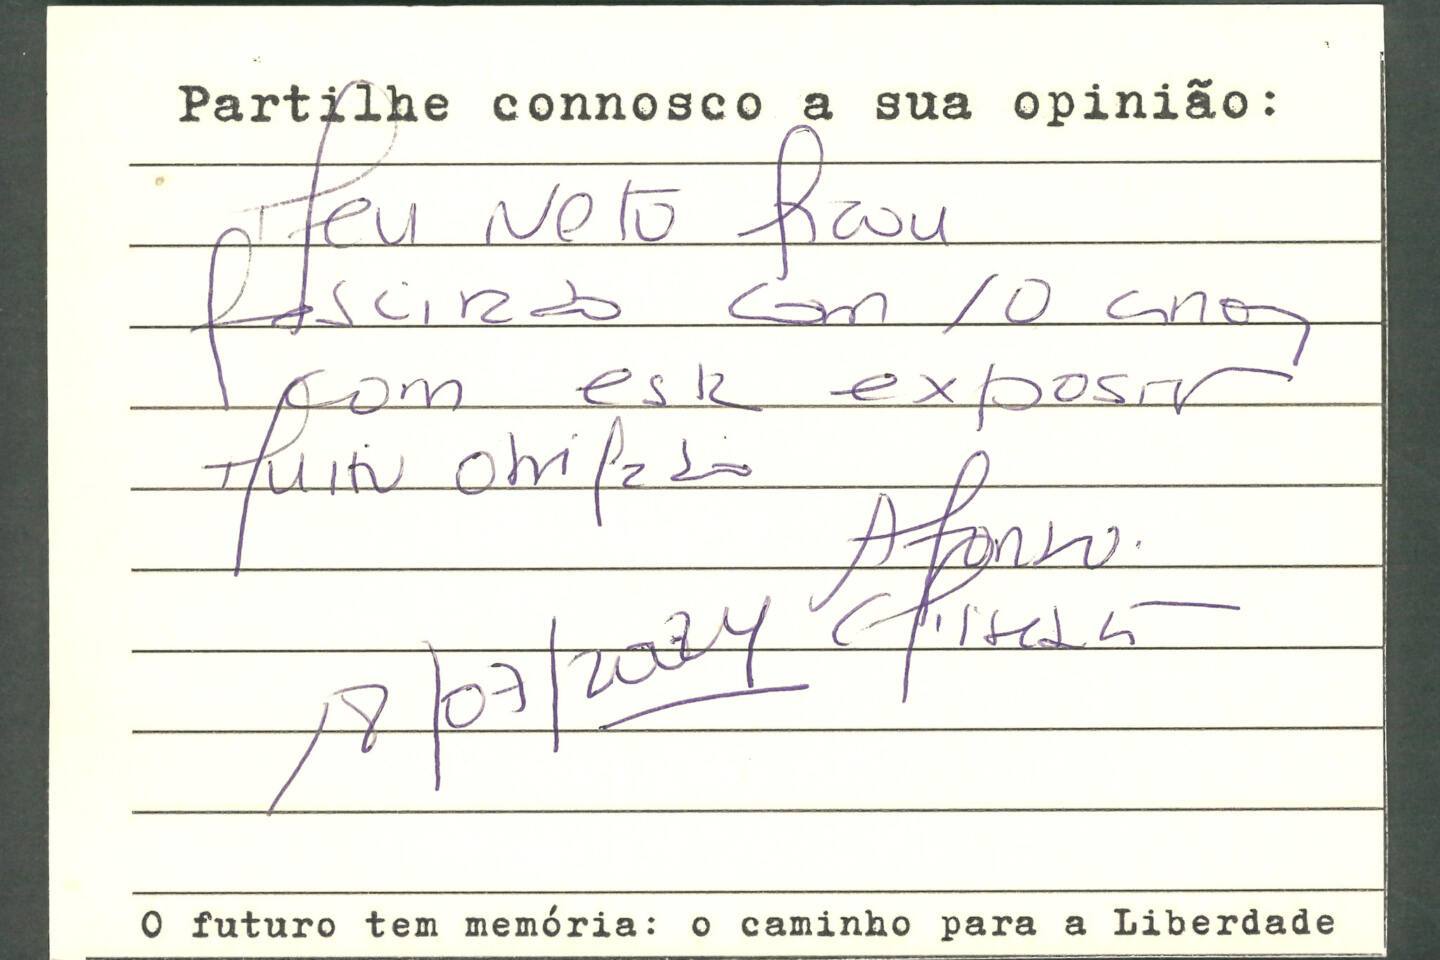 Partilhe connosco a sua opinião:
Meu Neto ficou
fascinado com 10 anos
com este
Muito obrigado
Afonso
18/07/2024
O futuro tem memória: o caminho para a Liberdade